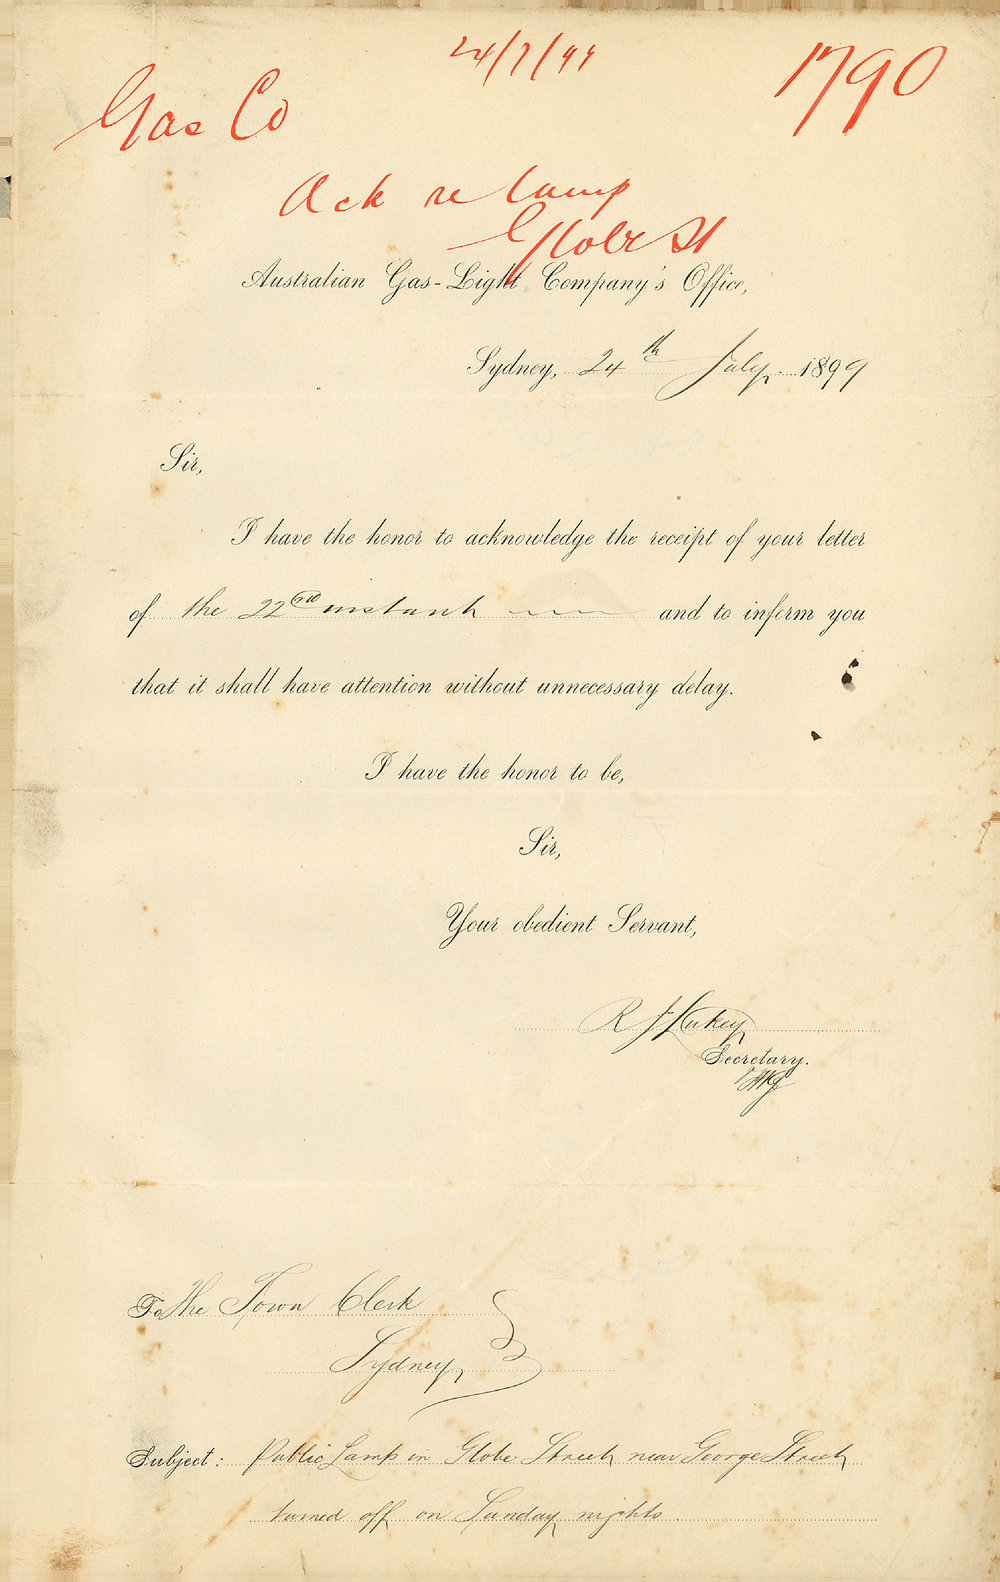 24/7/99
1790
Gas Co
Ack re lamp
Globe St
Australian Gas-Light Company's Office,
Sydney, 24th July 1899
Sir,
I have the honor to acknowledge the receipt of your letter
of the 22nd instant and to inform you
that it shall have attention without unnecessary delay.
I have the honor to be,
Sir,
Your obedient Servant,
R J Lukey
Secretary.
To The Town Clerk
Sydney
Subject: Public Lamp in Globe Street near George Street
turned off on Sunday nights.